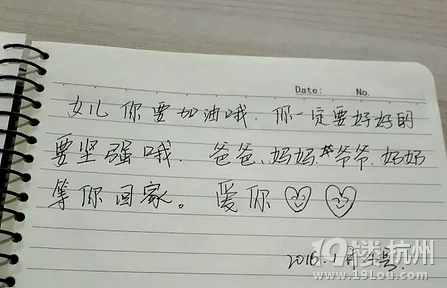 Date: No.
女儿 你要加油哦. 你一定要好好的
要坚强哦. 爸爸、妈妈 爷爷. 奶奶
等你回家。爱你
2016.1月4号.
19楼杭州
www.19lou.com